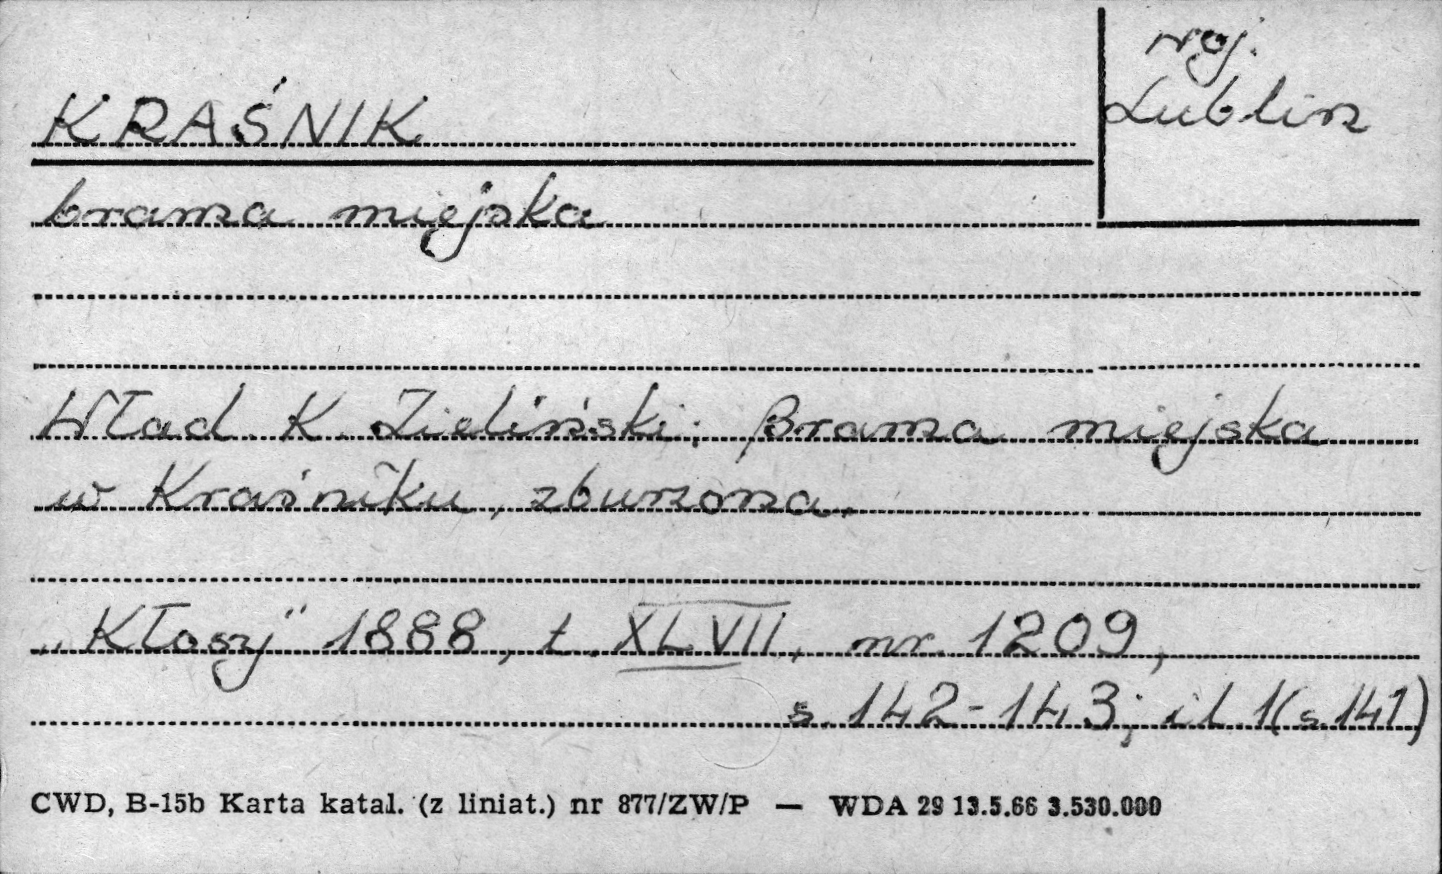 woj.
Lublin
KRAŚNIK
brama miejska
Wład. K. Zieliński; Brama miejska
w Kraśniku, zburzona.
„Kłosy" 1888, t. XLVII, nr. 1209,
s. 142-143; il. 1(s. 141)
CWD, B-15b Karta katal. (z liniat.) nr 877/ZW/P — WDA 29 13.5.66 3.530.000